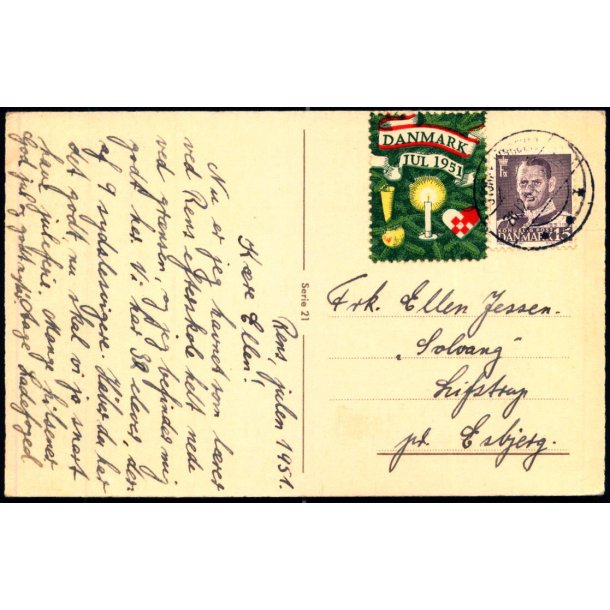 Rens, julen 1951.
Kære Ellen!
Nu er jeg havnet som lærer
ved Rens efterskole helt nede
ved grænsen, og jeg befinder mig
godt her. Vi har 38 elever, den
af 9 sydslesvigere. Håber du har
det godt nu skal vi jo snart
have juleferie. Mange hilsener
God jul og godt nytår! Aage Ladefoged
Serie 21
DANMARK
JUL 1951
DANMARK 15
Frk. Ellen Jessen.
"Solvang"
Sejstrup
pr. Esbjerg.